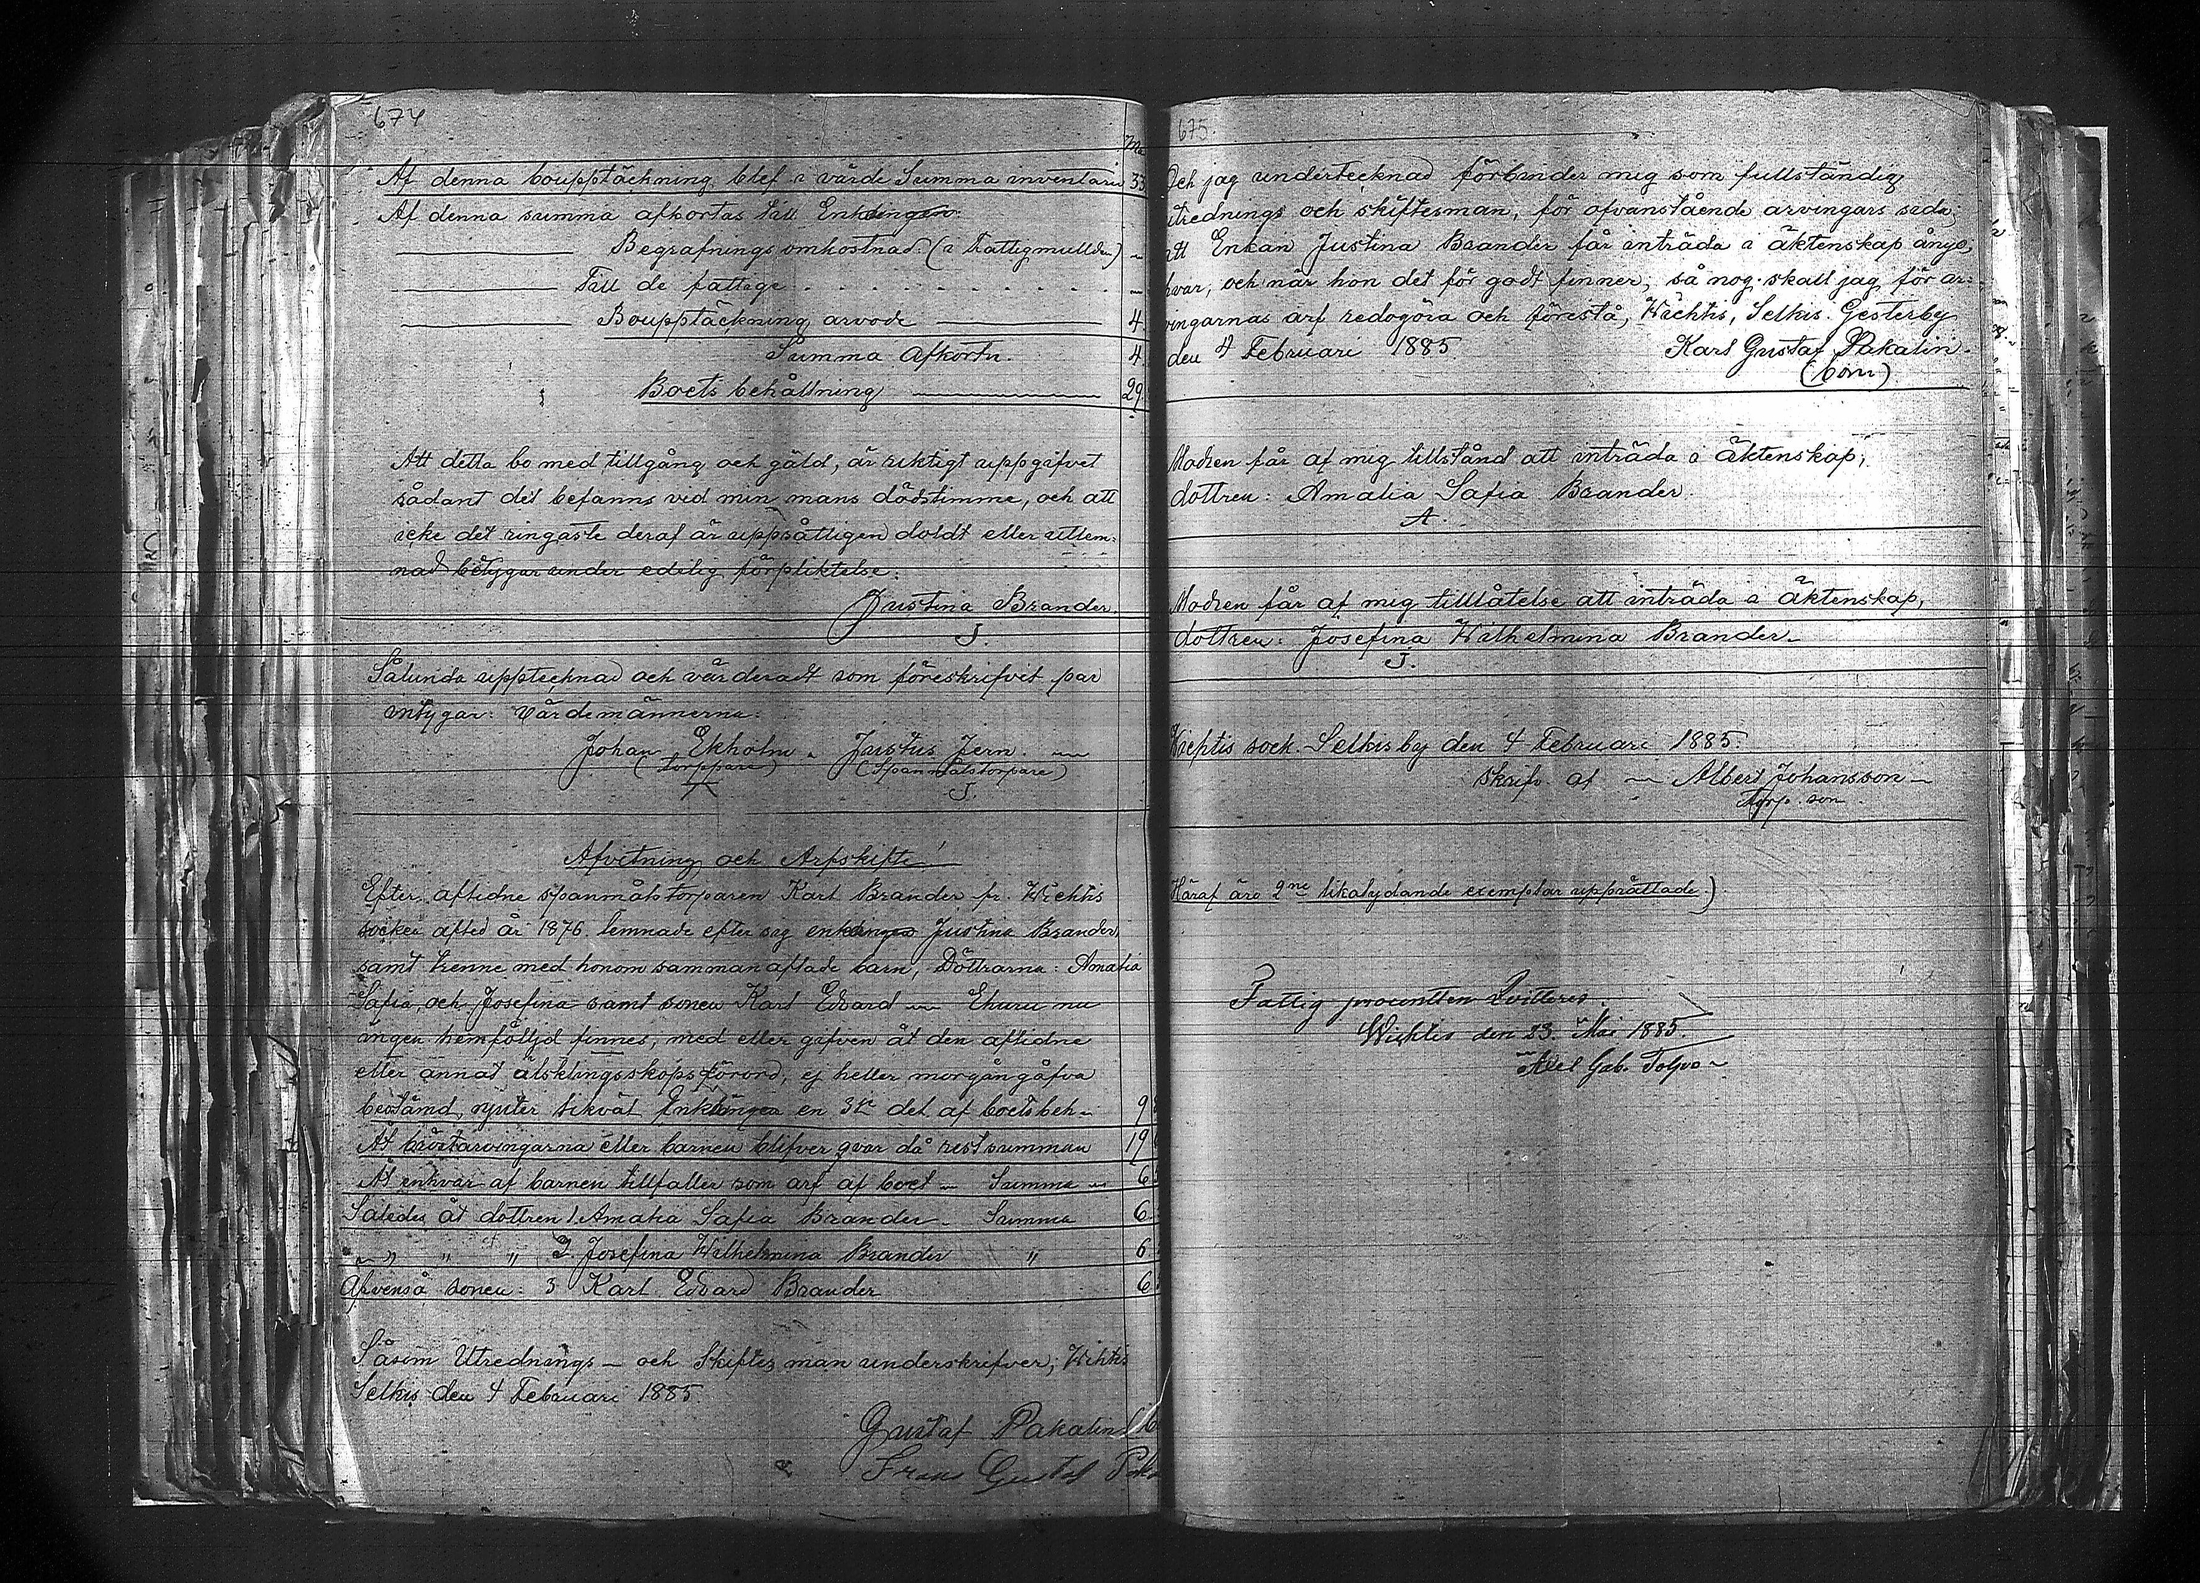 674
Af denna bouppteckning blef i värde Summa inventarii 33
Af denna summa afkortas till Enklingen
Begrafnings omkostnad (i Fattigmullen) –
Till de fattige . . . . . . . . . . –
Bouppteckning arvode 4
Summa Afkortn. 4
Boets behållning 29
Att detta bo med tillgång och gäld, är riktigt uppgifvet
sådant det befanns ved min mans dödstimme, och att
icke det ringaste deraf är uppsåtligen doldt eller utlem-
nad betygar under edelig förpliktelse:
Justina Brander.
J.
Sålunda upptecknad och värderadt som föreskrifvit par
intygar: Värdemännerna:
Johan Ekholm. Justus Jern.
(torppare) (Spanmålstorpare)
J.
Afvitning och Arfskifte
Efter aflidne spanmålstorparen Karl Brander fr. Wichtis
socken afled år 1876. lemnade efter sig enklingen Justina Brander,
samt trenne med honom sammanaflade barn, Döttrarna: Amalia
Safia, och Josefina samt sonen Karl Edvard – Ehuru nu
ingen hemföljd finnes, med eller gifven åt den aflidne
eller annat älsklingsskåps förord, ej heller morgångåfva
bestämd, njuter likväl Enklingen en 3de del af boets beh– 9
At bröstarvingarna eller barnen blifver qvar då restsumman 19
At enhvar af barnen tillfaller som arf af boet – Summa – 6
Således åt dottren 1 Amalia Safia Brander – Summa 6
" " " 2 Josefina Wilhelmina Brander " 6
Äfvenså sonen: 3 Karl Edvard Brander 6
Såsom Utrednings – och Skiftes man underskrifver; Wihtis
Selkis den 4 Februari 1885.
Gustaf Pakalin
Frans Gustaf
675.
Och jag undertecknad förbinder mig som fullständig
utrednings och skiftesman, för ofvanstående arvingars sida,
att Enkan Justina Brander får inträda i äktenskap ånyo,
hvar, och när hon det för godt finner, så nog skall jag för ar-
vingarnas arf redogöra och förestå, Wichtis, Selkis. Gesterby
den 4 Februari 1885 Karl Gustaf Pakalin.
Modren får af mig tillstånd att inträda i äktenskap,
dottren: Amalia Safia Brander.
A.
Modren får af mig tilllåtelse att inträda i äktenskap,
dottren: Josefina Wilhelmina Brander–
J.
Wichtis sock. Selkis by den 4 Februari 1885.
skrifv. af – Albert Johansson –
Torp. son
Häraf äro 2ne likalydande exemplar upprättade.)
Fattig procentten Qvitteres
Wichtis den 23. Mai 1885.
Axel Gab.